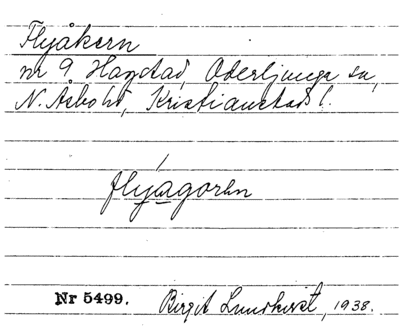 Flyåkern
nr 9 Hagstad, Oderljunga sn,
N. Åsbo hd, Kristianstads l.
flyagorən
Nr 5499. Birgit Lundkvist, 1938.